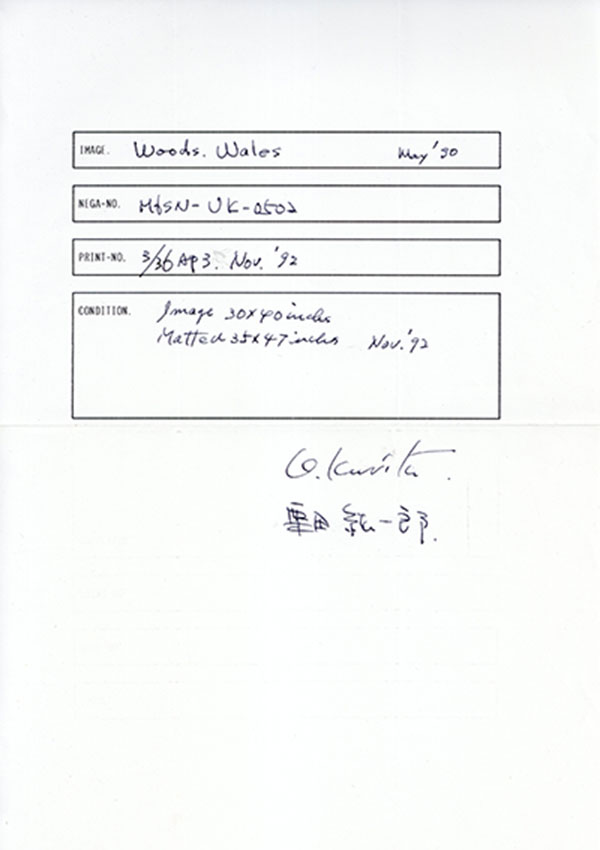 IMAGE. Woods. Wales May '90
NEGA-NO. M6SN-UK-0502
PRINT-NO. 3/36 AP3. Nov. '92
CONDITION. Image 30×40 inches
Matted 35×47 inches Nov. '92
Kurita.
栗田 紘一郎.